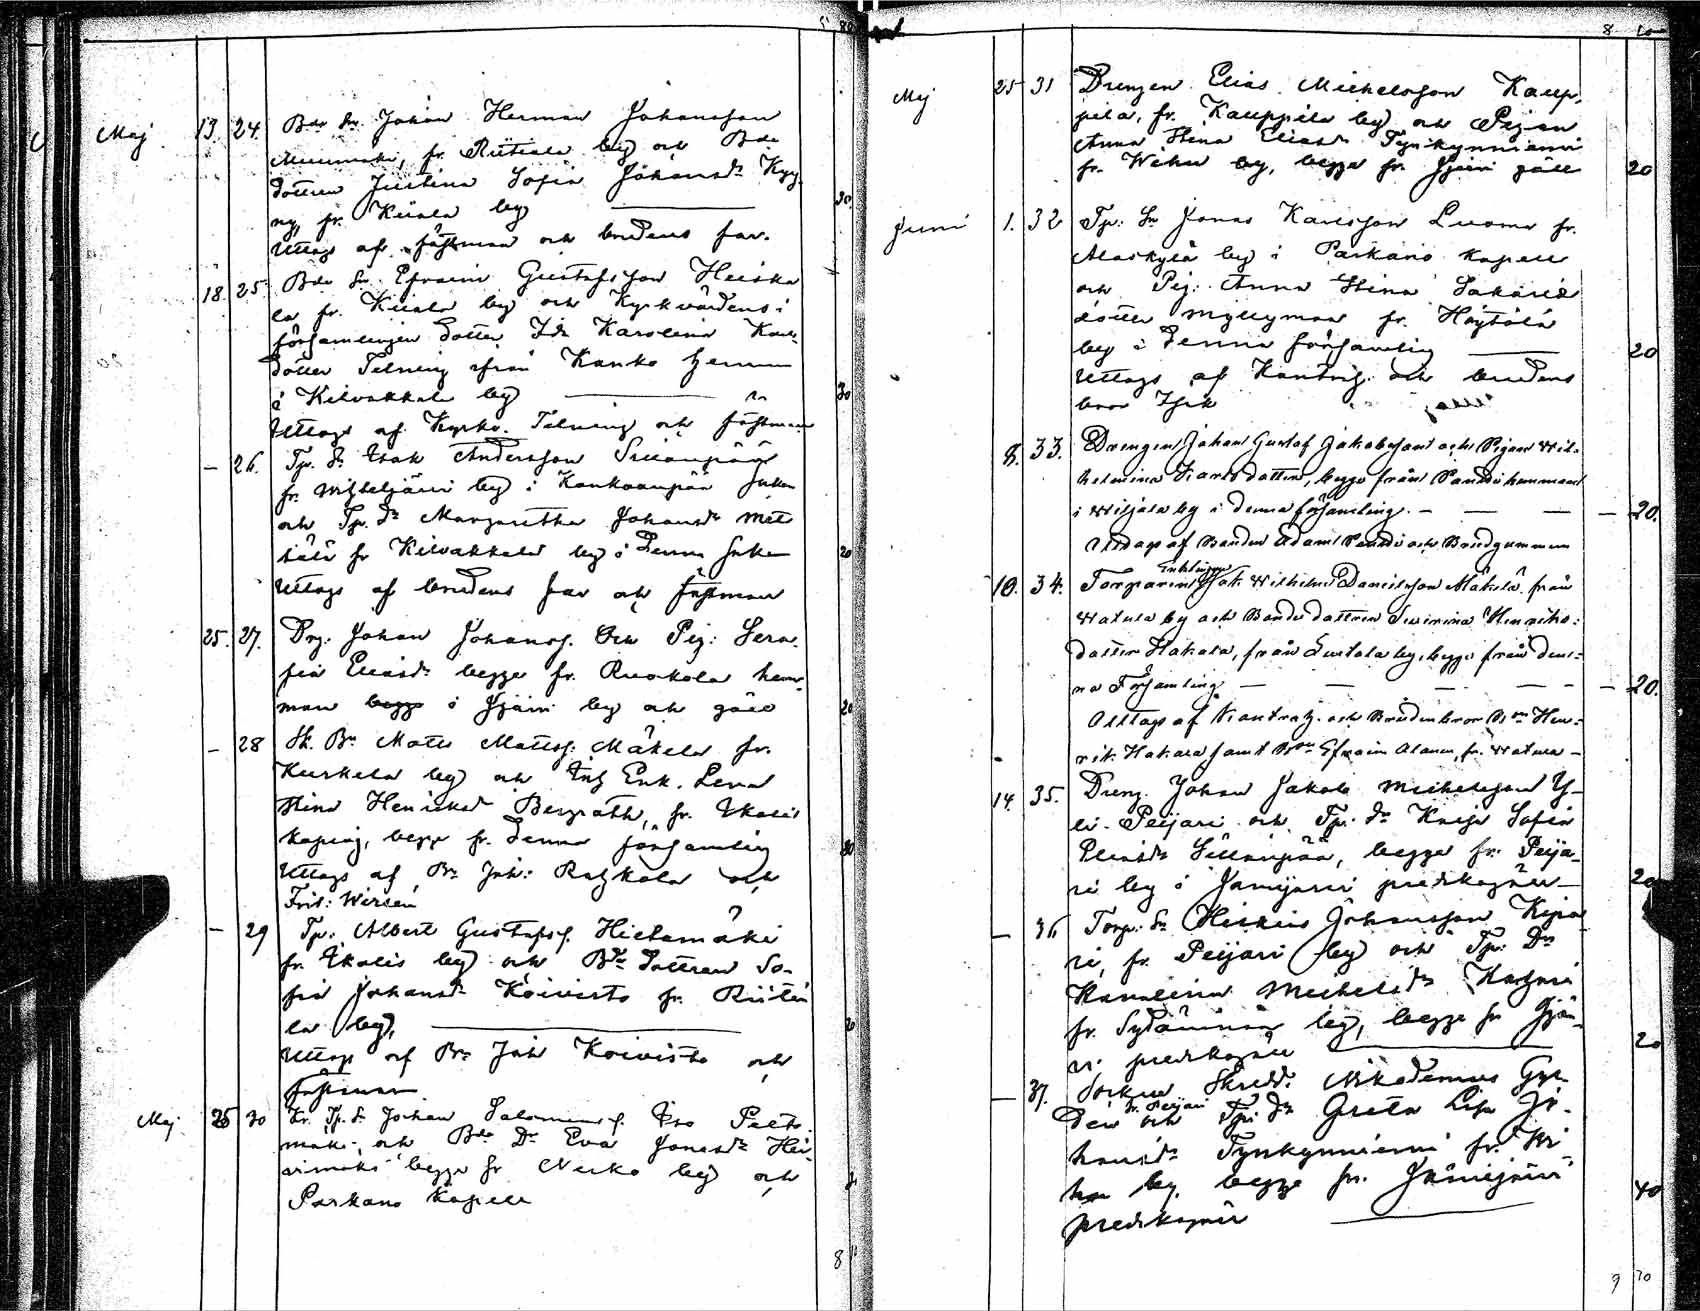 Maj 13. 24. Bde Sn Johan Herman Johansson
fr. Riitiala by och Bde
dottren Justina Sofia Johansdr Kyy
ny, fr. Kiiala by 20.
Uttogs af fästman och brudens far.
18. 25. Bde Sn Efraim Gustafsson Heiska
la fr. Kiiala by och Kyrkvärdens i
församlingen dotter Ida Karolina Karls
dotter Telning ifrån Kanko hemman
i Kilvakkala by 20
Uttogs af Kyrkv. Telning och fästman
— 26. Tp. Sn Isak Andersson Sillanpää
fr. by i Kankaanpää Sokn
och Tp. Dr Margaretha Johansdr Met
sälä fr Kilvakkala by i denna Sokn 20
Uttogs af brudens far och fästman
25. 27. Drg: Johan Johanss. Och Pig: Sera
fia Eliasdr begge fr. Ruokola hem
man i Jjärvi by och gäld 20
— 28 Sk. Bn Matts Mattss. Mäkelä fr.
Kurkela by och Enk. Lena
Stina Henriksd Bergroth, fr. Ikalis
köping, begge fr. denna församling 20
Uttogs af Bn Joh: och
Frit: Wirsén
— 29 Tp: Albert Gustafss. Hietamäki
fr. Ikalis by och Bde dottren So-
fia Johansdr Koivisto fr. Riitia
la by, 20
Uttogs af Bn Joh Koivisto och
fästman
Maj 25 30 Tp. Sn Johan Salomonss. Iso Pelto
mäki och Bde Dr Eva Jonasdr Hei
nimäki begge fr Nerko by och
Parkano Kapell
8
8 10
Maj 25 31 Drengen Elias Michelsson Kaup
pila, fr. Kauppila by och Pigan
Anna Stina Eliasdr Tynkynniemi
fr. Wihu by, begge fr. Jjärvi gäll 20
Juni 1. 32 Tp: Sn Jonas Karlsson Luoma fr.
Alaskylä by i Parkano Kapell
och Pig: Anna Stina Sakaries
dotter Myllymaa fr. Höytölä
by i denna församling 20
Uttogs af Kantrig. och brudens
bror Isak
8. 33. Drengen Johan Gustaf Jakobsson och Pigan Wil-
helmina Karlsdotter, begge från Pandi hemman
i Wiljala by i denna församling. — — — 20.
Uttogs af Bonden Adam Pandi och Brudgummen
10. 34. Torparen Enklingen Joh. Wilhelm Danielsson Mäkelä från
Watula by och Bonde dottren Severina Henriks-
dotter Hakala, från Luotola by, begge från den-
na Församling — — — 20.
Uttogs af Kantratg. och Brudens bror Bon Hen-
rik Hakala samt Bon Efraim Alanen, fr. Watula —
14. 35. Dreng. Johan Jakob Michelsson Y-
li-Peijari och Tp. Dr Kaisa Sofia
Eliasdr Sillanpää, begge fr. Peija-
ri by i Jämijärvi predikogäll 20
— 36 Torp. Sn Heikius Johansson Kija
ri, fr. Peijari by och Tp. Dr
Karolina Michelsdr Kaspari
fr. Sydänmaa by, begge fr Jjär-
vi predikogäll 20
— 37. Sockne Skredd. Nikodemus Gyl
dén fr. Peijari och Tp: Dr Greta Lisa Jo
hansdr Tynkynniemi fr. Wi
hu by, begge fr. Jämijärvi 40
predikogäll
9 70